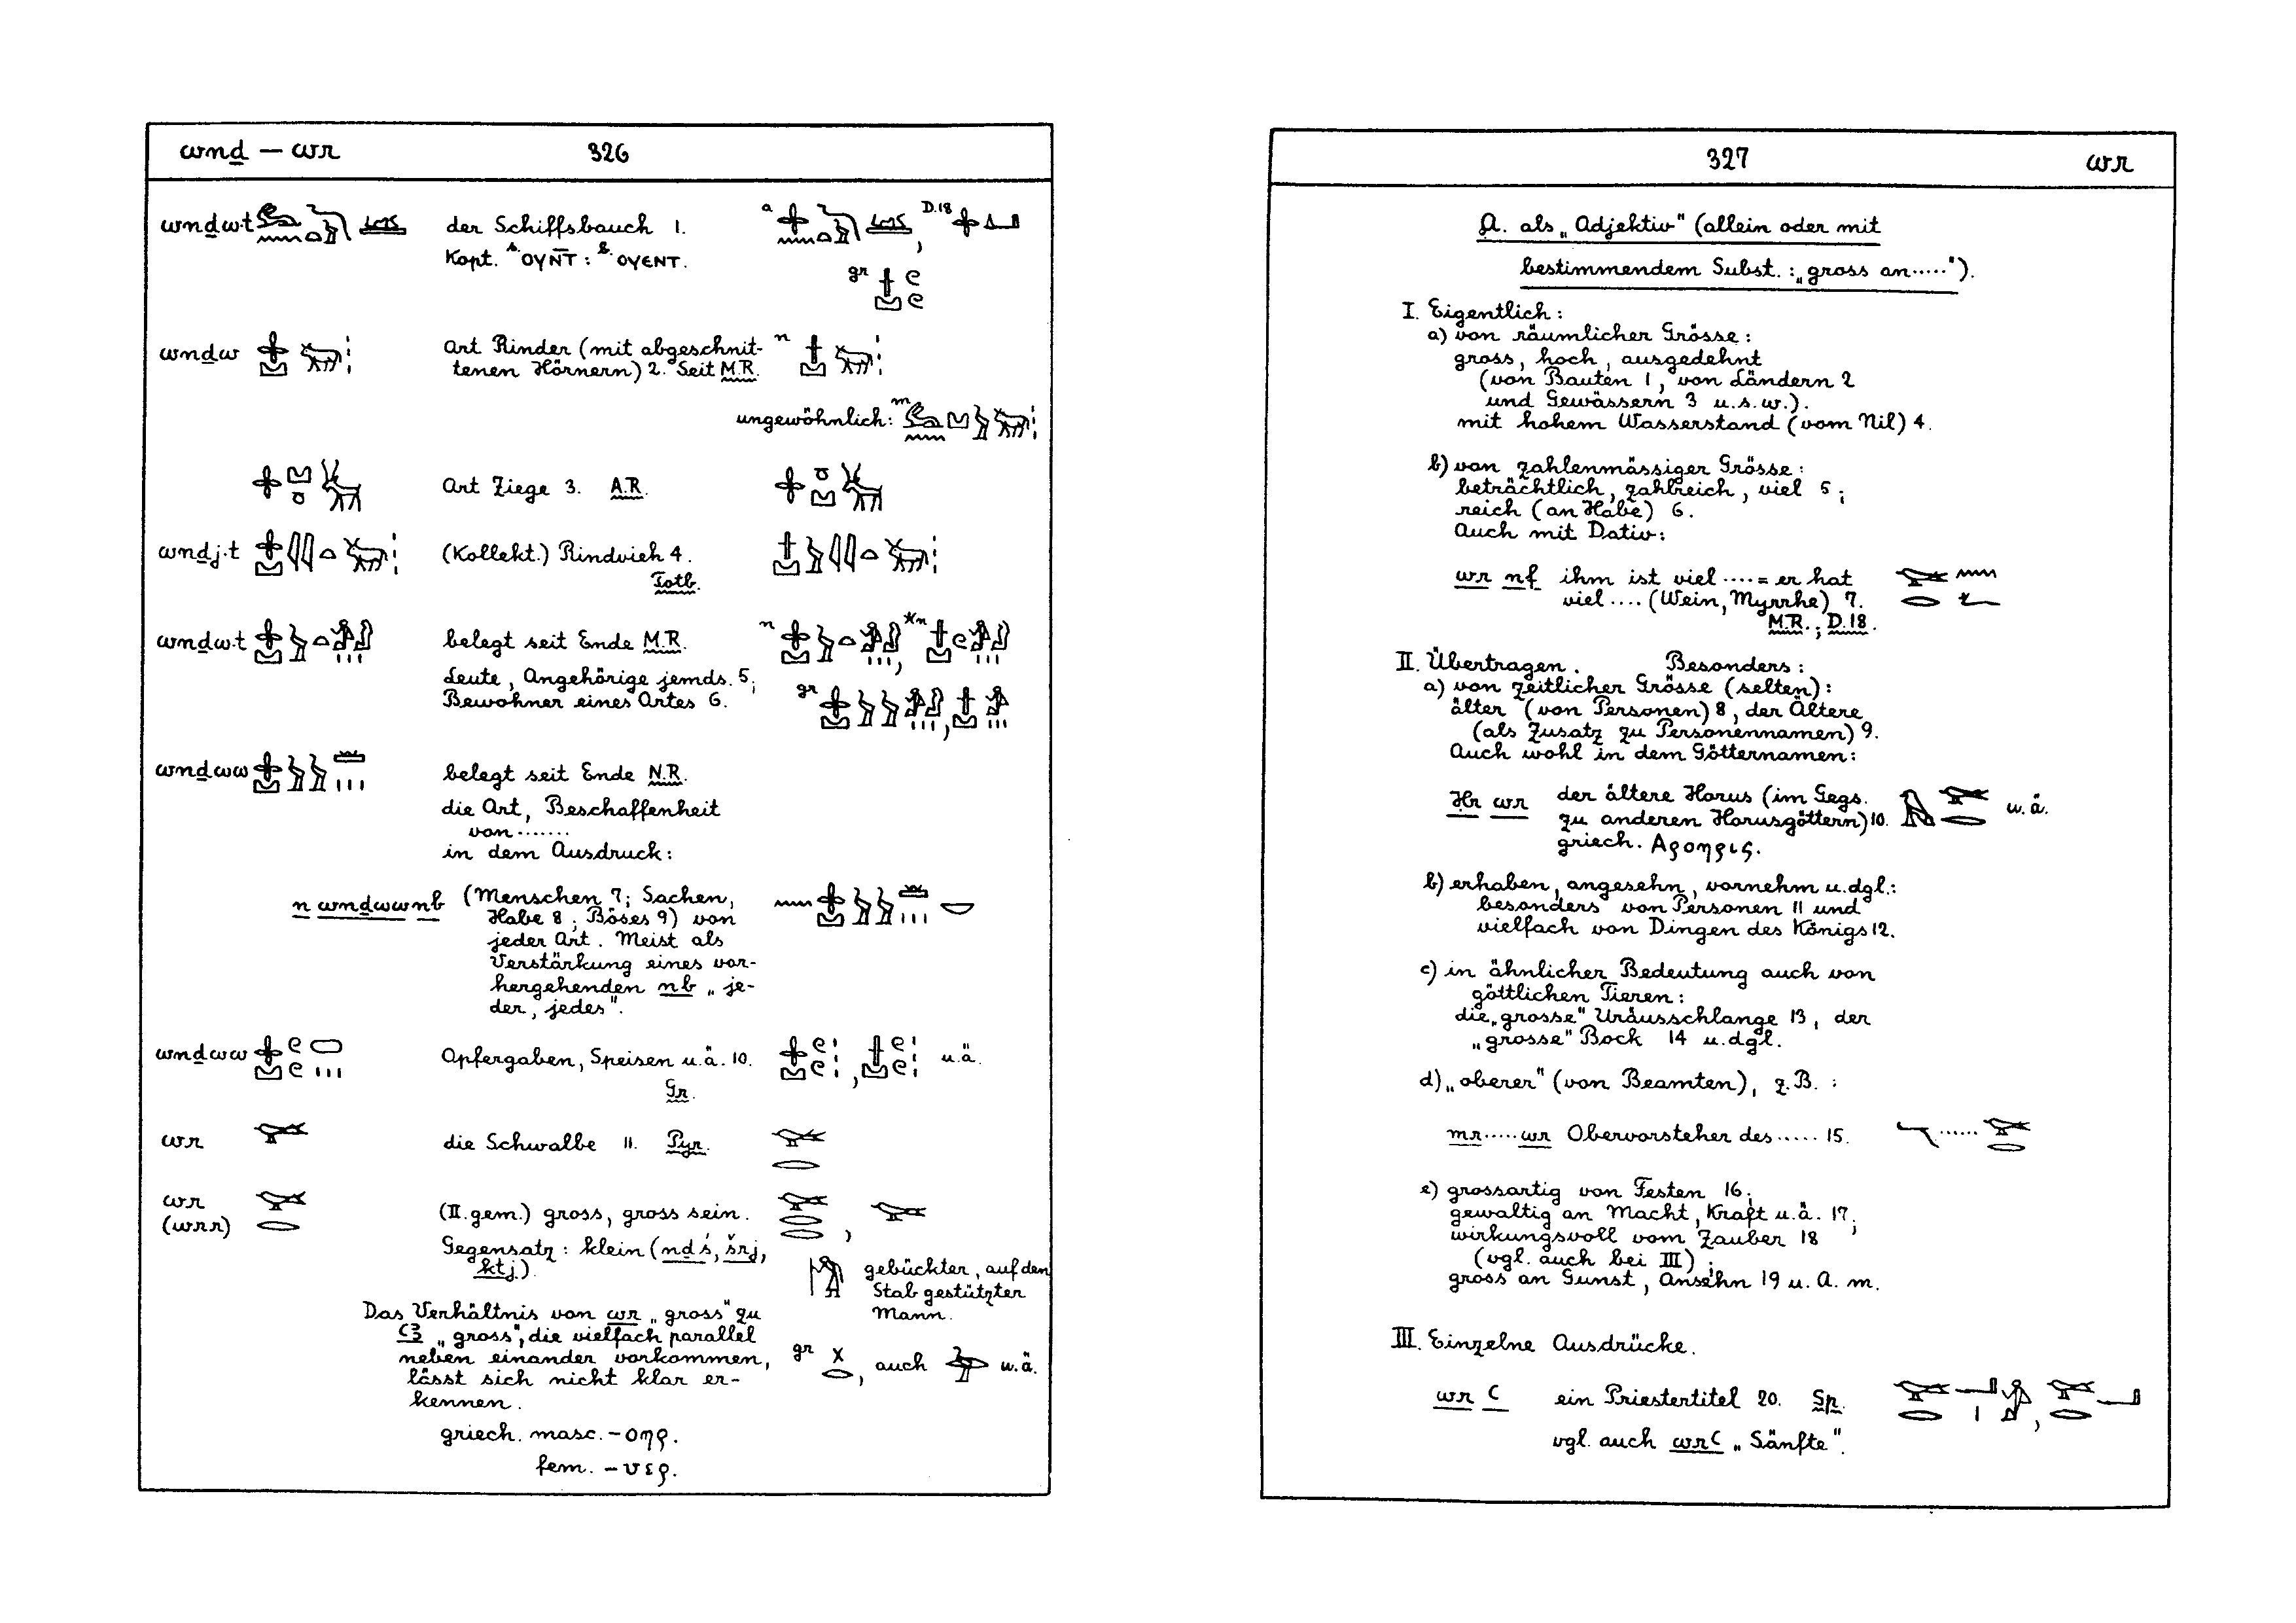 wnḏ — wr 326
wnḏwt der Schiffsbauch 1. a , D.18
Kopt. s. ⲟⲩⲛ̅ⲧ : b. ⲟⲩⲉⲛⲧ.
gr
wnḏw Art Rinder (mit abgeschnit- n
tenen Hörnern) 2. Seit M.R.
ungewöhnlich: m
Art Ziege 3. A.R.
wnḏj·t (Kollekt.) Rindvieh 4.
Totb.
wnḏw·t belegt seit Ende M.R. n , *n
Leute, Angehörige jemds. 5;
Bewohner eines Ortes 6. gr ,
wnḏww belegt seit Ende N.R.
die Art, Beschaffenheit
von .......
in dem Ausdruck:
n wnḏww nb (Menschen 7; Sachen,
Habe 8; Böses 9) von
jeder Art. Meist als
Verstärkung eines vor-
hergehenden nb „je-
der, jedes".
wnḏww Opfergaben, Speisen u.ä. 10. , u.ä.
Gr.
wr die Schwalbe 11. Pyr.
wr
(wrr) (II.gem.) gross, gross sein. ,
Gegensatz: klein (nḏś, šrj,
ktj). gebückter, auf den
Stab gestützter
Mann.
Das Verhältnis von wr „gross" zu
ꜥꜣ „gross", die vielfach parallel
neben einander vorkommen,
lässt sich nicht klar er-
kennen. gr , auch u.ä.
griech. masc. –οηρ.
fem. –υερ.
327 wr
A. als „Adjektiv" (allein oder mit
bestimmendem Subst.: „gross an .....").
I. Eigentlich:
a) von räumlicher Grösse:
gross, hoch, ausgedehnt
(von Bauten 1, von Ländern 2
und Gewässern 3 u.s.w.).
mit hohem Wasserstand (vom Nil) 4.
b) von zahlenmässiger Grösse:
beträchtlich, zahlreich, viel 5;
reich (an Habe) 6.
Auch mit Dativ:
wr nf ihm ist viel .... = er hat
viel .... (Wein, Myrrhe) 7.
M.R.; D.18.
II. Übertragen. Besonders:
a) von zeitlicher Grösse (selten):
älter (von Personen) 8, der Ältere
(als Zusatz zu Personennamen) 9.
Auch wohl in dem Götternamen:
Ḥr wr der ältere Horus (im Gegs.
zu anderen Horusgöttern) 10. u.ä.
griech. Αροηρις.
b) erhaben, angesehn, vornehm u.dgl.:
besonders von Personen 11 und
vielfach von Dingen des Königs 12.
c) in ähnlicher Bedeutung auch von
göttlichen Tieren:
die „grosse" Uräusschlange 13, der
„grosse" Bock 14 u.dgl.
d) „oberer" (von Beamten), z.B.:
mr ..... wr Obervorsteher des ..... 15. ......
e) grossartig von Festen 16;
gewaltig an Macht, Kraft u.ä. 17;
wirkungsvoll vom Zauber 18
(vgl. auch bei III);
gross an Gunst, Ansehn 19 u. A. m.
III. Einzelne Ausdrücke.
wr ꜥ ein Priestertitel 20. Sp. ,
vgl. auch wrꜥ „Sänfte".